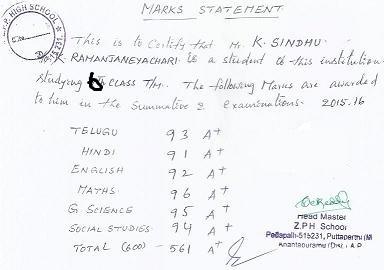 MARKS STATEMENT
Z.P.P. HIGH SCHOOL
515231.
This is to Certify that Mr. K. SINDHU
K. RAMANJANEYACHARI is a student of this institution
studying 6th CLASS T/m. The following Marks are awarded
to him in the Summative 2 examinations. 2015.16
TELUGU 93 A+
HINDI 91 A+
ENGLISH 92 A+
MATHS 96 A+
G. SCIENCE 95 A+
SOCIAL STUDIES 94 A+
TOTAL (600) - 561 A+
Head Master
Z.P.H School
Pedapalli-515231, Puttaparthi (M)
Anantapuramu (Dist.) A.P